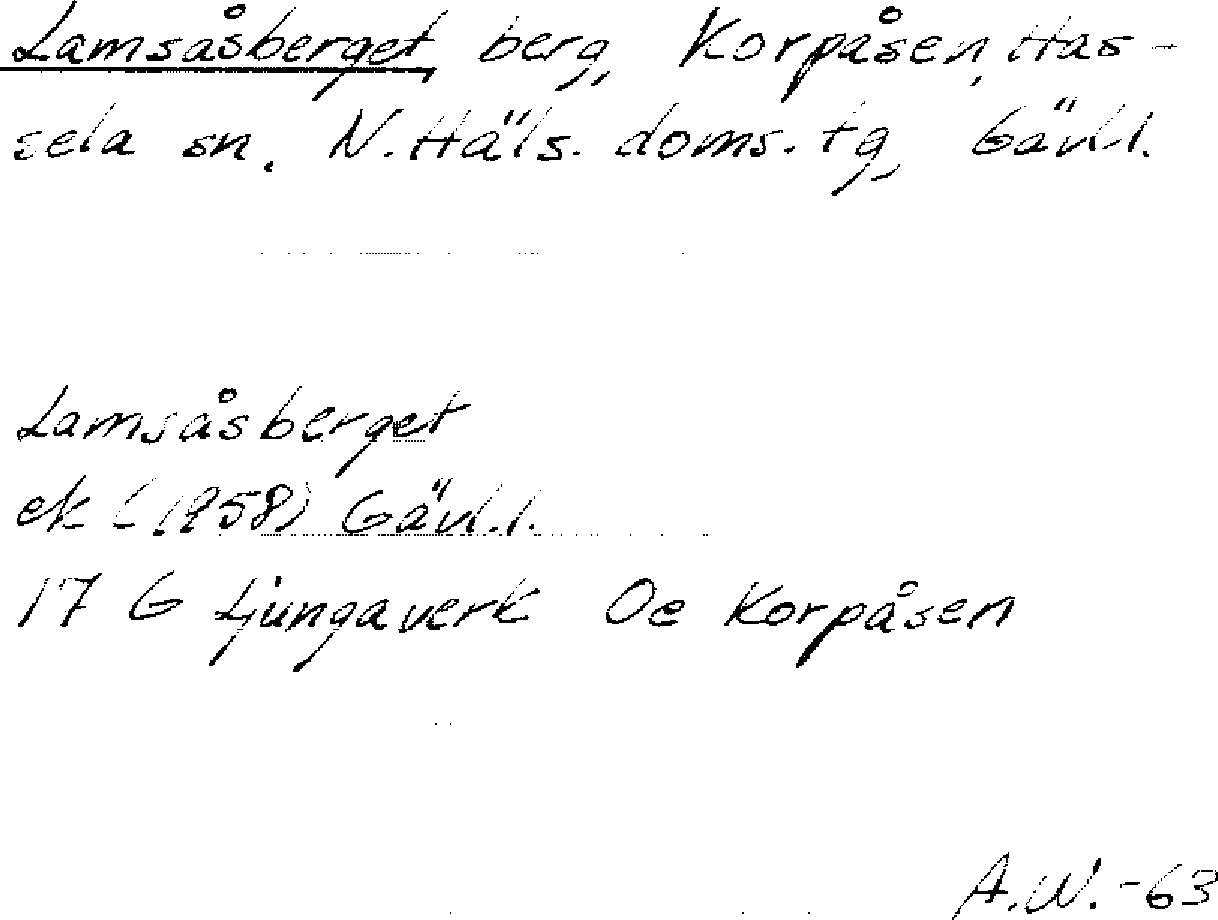 Lamsåsberget, berg, Korpåsen, Has-
sela sn, N. Häls. doms. tg, Gävl. l.
Lamsåsberget
ek (1958) Gävl. l.
17 G Ljungaverk Oe Korpåsen
A.W. -63